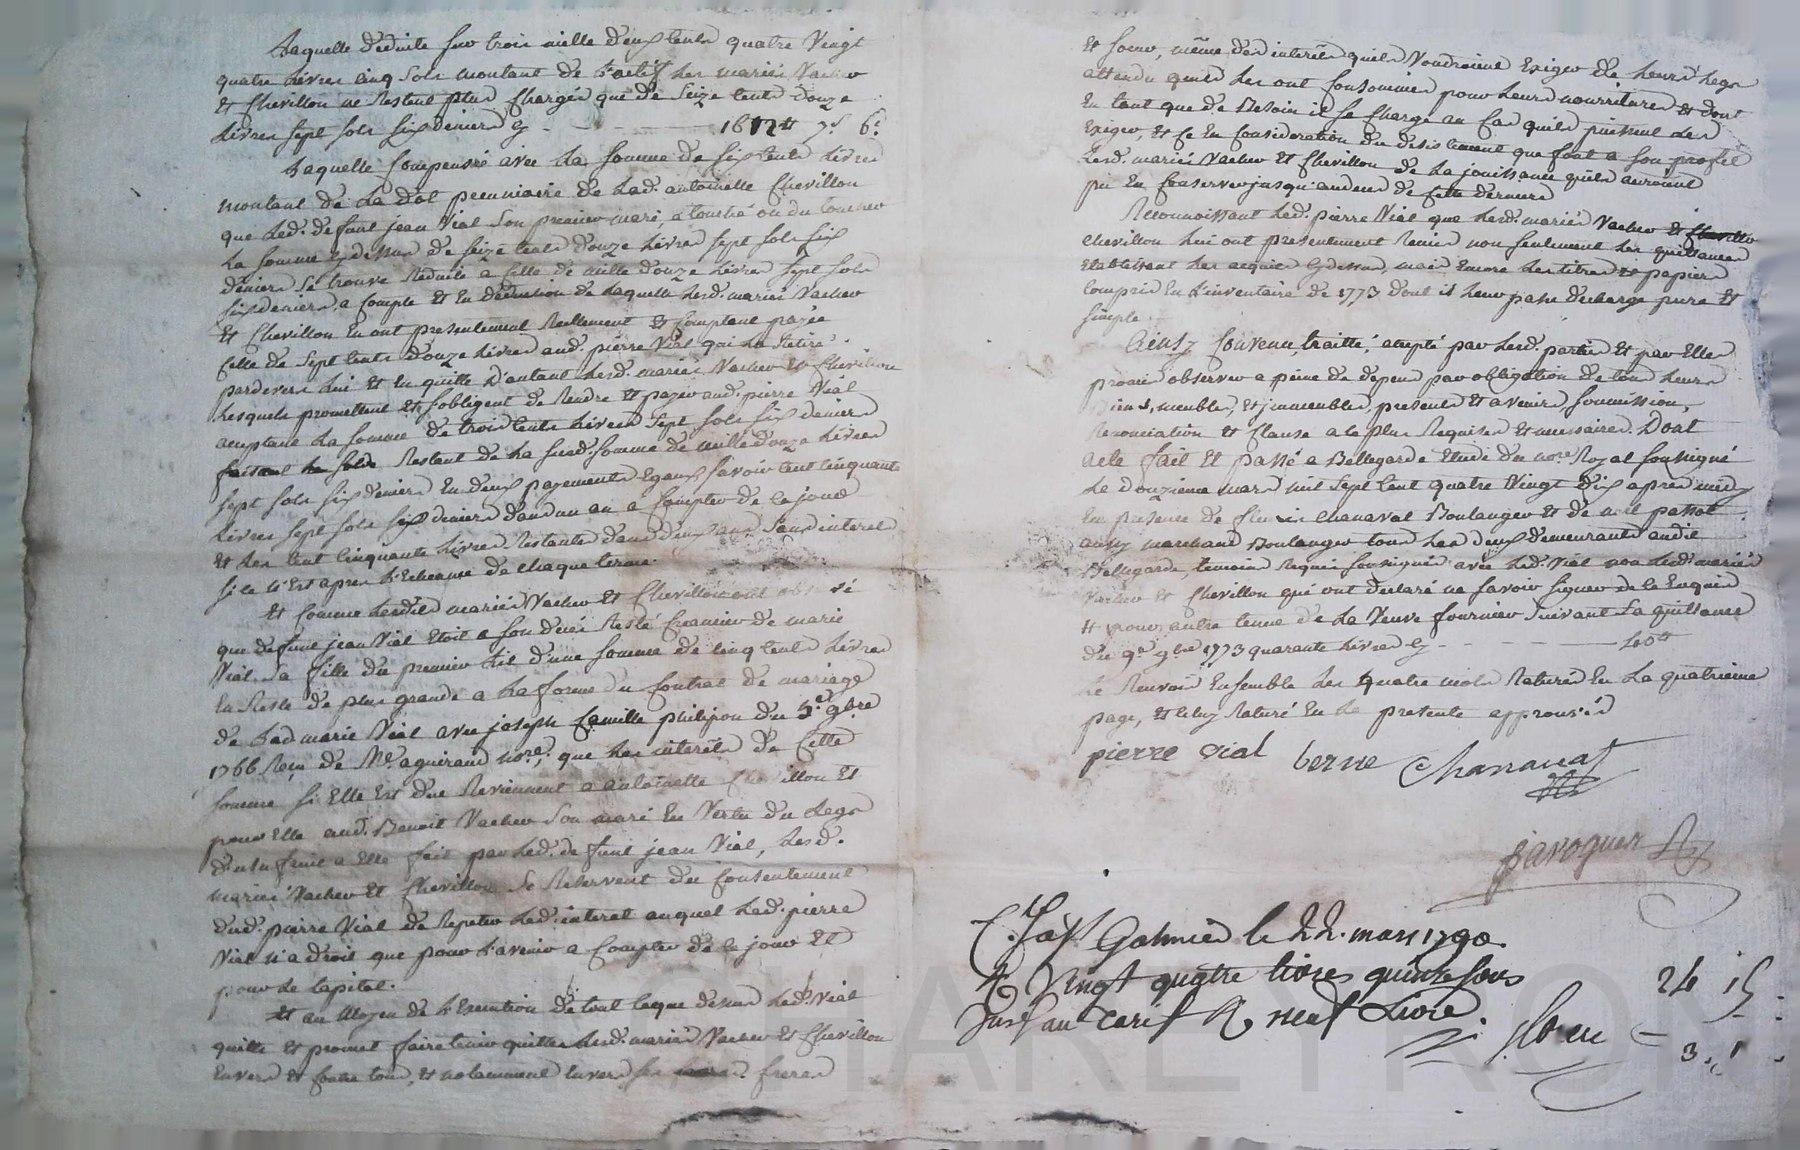 Laquelle déduite sur trois mille deux cents quatre vingt
quatre livres cinq sols montant de l'actif les mariés Vacher
et Chevillon ne restent plus chargés que de seize cents douze
livres sept sols six deniers cy - 1612tt 7s 6d
Laquelle compensée avec la somme de six cents livres
montant de la dot pecuniaire de lad. antoinette Chevillon
que led. defunt jean Vial son premier mari, a touché ou du toucher
la somme cy dessus de seize cents douze livres sept sols six
deniers se trouve reduite a celle de mille douze livres sept sols
six deniers, a compte et en déduction de laquelle lesd. mariés Vacher
et Chevillon en ont presentement reellement et comptant payée
celle de sept cents douze livres aud. pierre Vial qui la retire
pardevers lui et en quitte d'autant lesd. mariés Vacher et Chevillon
lesquels promettent et s'obligent de rendre et payer aud. pierre Vial
acceptant la somme de trois cents livres sept sols six deniers
faisant le solde restant de la susd. somme de mille douze livres
sept sols six deniers en deux payements egaux savoir cent cinquante
livres sept sols six deniers dans un an a compter de ce jour
et les cent cinquante livres restantes dans deux ans sans interet
si ce n'est apres l'echeance de chaque terme.
et comme lesdits mariés Vacher et Chevillon ont observé
que defunt jean Vial etoit a son décès resté creancier de marie
Vial sa fille du premier lit d'une somme de cinq cents livres
en reste de plus grande a la forme du contrat de mariage
de lad marie Vial avec joseph Camille philipon du 5e 9bre
1766 reçu de Me aguiraud nore; que les interêts de cette
somme si elle est due reviennent a antoinette Chevillon et
pour elle aud. Benoit Vacher son mari en vertu du legs
d'usufruit a elle fait par led. defunt jean Vial, lesd.
mariés Vacher et Chevillon se reservent du consentement
dud. pierre Vial de repeter led. interet auquel led. pierre
Vial n'a droit que pour l'avenir a compter de ce jour et
pour le capital.
et au moyen de l'execution de tout ce que dessus led. Vial
quitte et promet faire tenir quittes lesd. mariés Vacher et Chevillon
envers et contre tous, et notamment envers ses freres
et soeur, même des interêts quels voudroient exiger de leurs legs
attendu quils les ont consommés pour leurs nourritures et dont
en tant que de besoin il se charge au cas quils puissent les
exiger, et ce en consideration du desistement que font a son profit
lesd. mariés Vacher et Chevillon de la jouissance quils auroient
pu en conserver jusqu'au deces de cette derniere
Reconnoissant led. pierre Vial que lesd. mariés Vacher et
chevillon lui ont presentement remis non seulement les quittances
etablissant les acquits cy dessus, mais encore les titres et papiers
compris en l'inventaire de 1773 dont il leur passe decharge pure et
simple.
Ainsy convenu, traitté, accepté par lesd. parties et par elles
promis observer a peine de depens par obligation de tous leurs
biens, meubles, et immeubles, presents et avenir, soumission,
renonciation et clause a ce plus requises et necessaires. Dont
acte fait et passé a Bellegarde etude du nore royal soussigné
le douzieme mars mil sept cent quatre vingt dix apres midy
en presence de Chanavat Boulanger et de
aussy marchand Boulanger tous les deux demeurants audit
Bellegarde, temoins requis soussignés avec led. Vial non lesd. mariés
Vacher et Chevillon qui ont declaré ne savoir signer de ce enquis
et pour autre tenue de la veuve fournier suivant sa quittance
du 9e 9bre 1773 quarante livres cy - 40tt
le renvoi ensemble les quatre mots raturés en la quatrieme
page, et celuy raturé en la presente approuvés
pierre vial berne Chanavat
Laroguer
St Galmier le 22. mars 1790.
R vingt quatre livres quinze sous
neuf Livre.
24 15
3 1